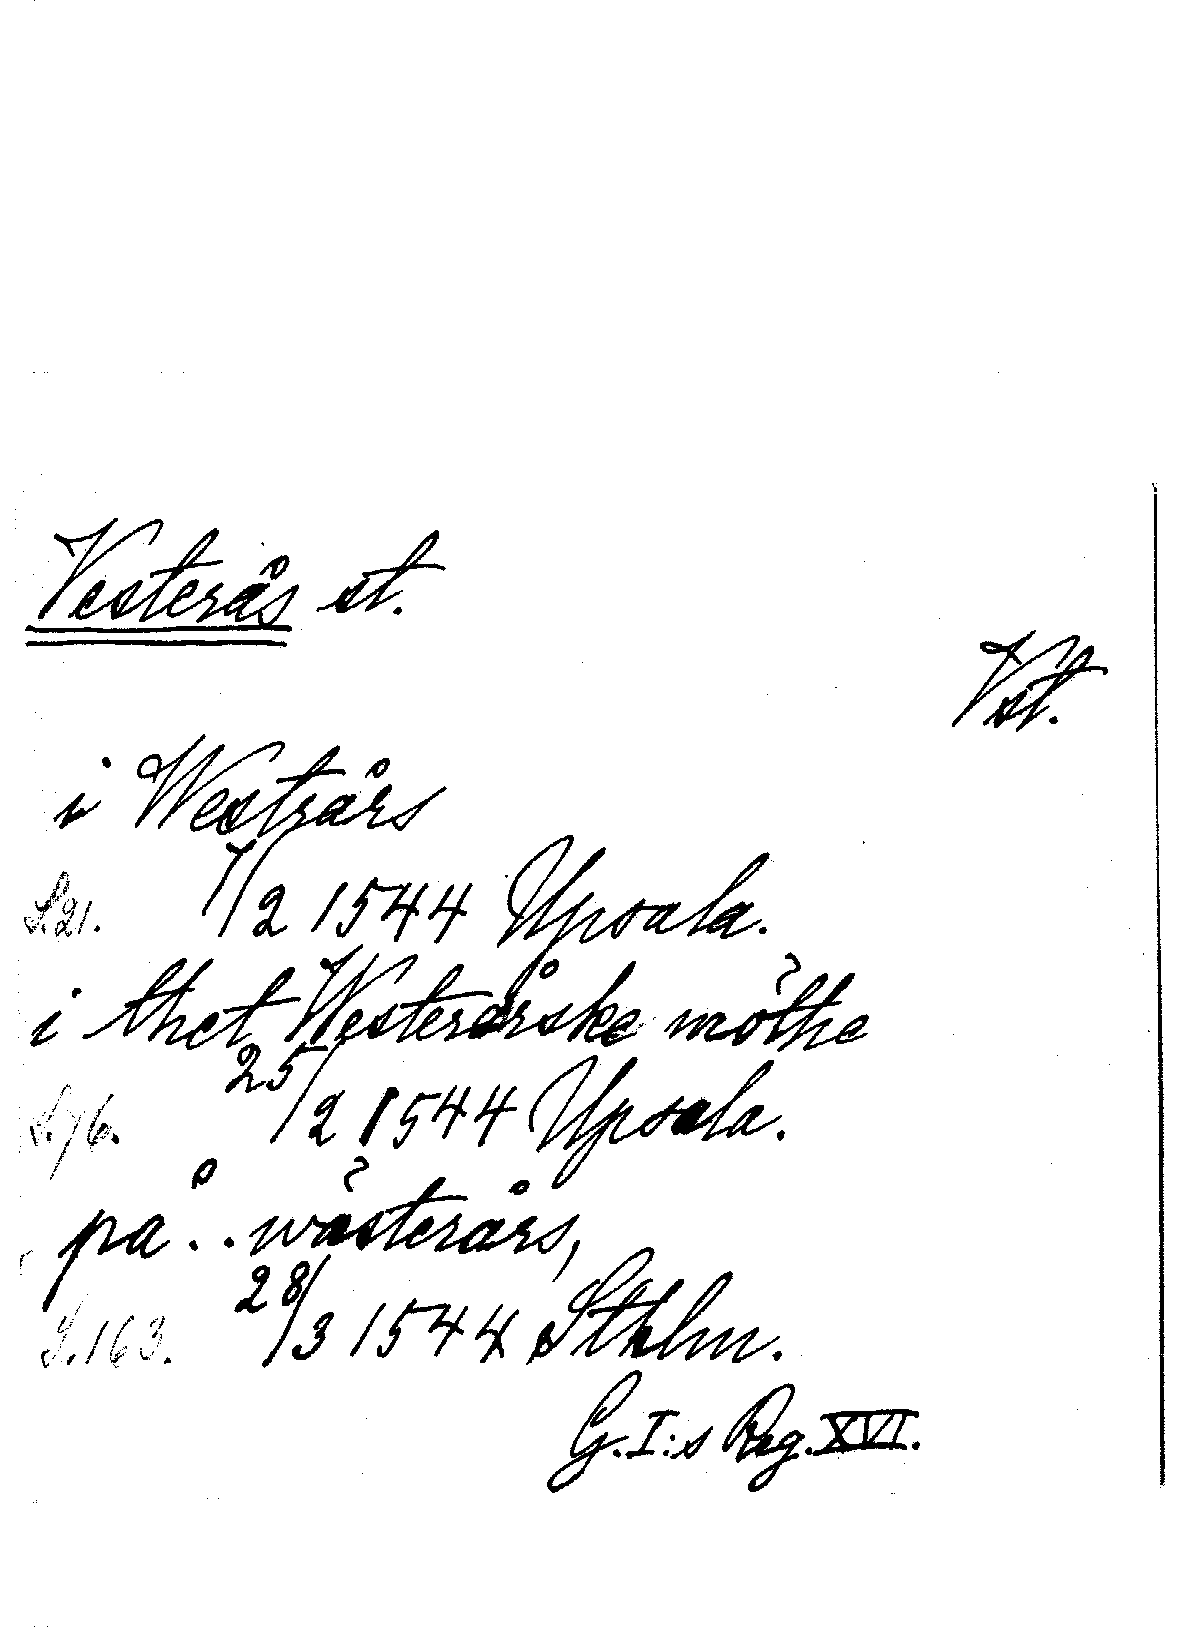 Vesterås st.
Vst.
i Westrårs
S.21. 7/2 1544 Upsala.
i thet Westerårske möthe
S.76. 25/2 1544 Upsala.
på . . wästerårs,
S.163. 28/3 1544 Sthlm.
G.I:s Reg. XVI.